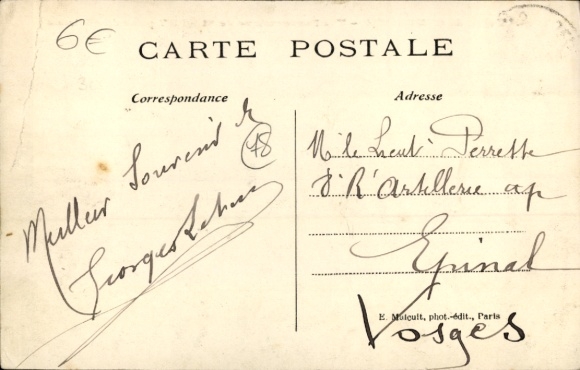 6€
CARTE POSTALE
Correspondance
Adresse
48
Meilleur Souvenir de
Georges
Mr le Lieut Perrette
8e R' d'Artillerie à p
Epinal
Vosges
E. Malcuit, phot.-édit., Paris